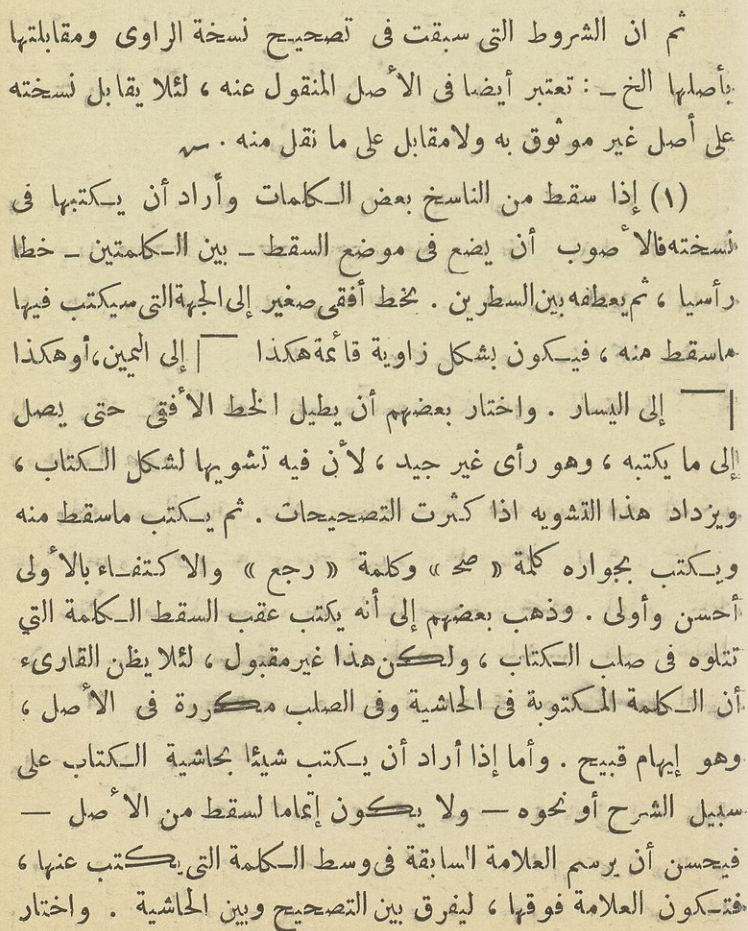 ثم ان الشروط التى سبقت فى تصحيح نسخة الراوى ومقابلتها
بأصلها الخ ـ : تعتبر أيضا فى الأصل المنقول عنه ، لئلا يقابل نسخته
على أصل غير موثوق به ولا مقابل على ما نقل منه . س
(١) إذا سقط من الناسخ بعض الكلمات وأراد أن يكتبها فى
نسخته فالأصوب أن يضع فى موضع السقط ـ بين الكلمتين ـ خطا
رأسيا ، ثم يعطفه بين السطرين . بخط أفقى صغير إلى الجهة التى سيكتب فيها
ماسقط منه ، فيكون بشكل زاوية قائمة هكذا ‾| إلى اليمين ، أو هكذا
|‾ إلى اليسار . واختار بعضهم أن يطيل الخط الأفقى حتى يصل
إلى ما يكتبه ، وهو رأى غير جيد ، لأن فيه تشويها لشكل الكتاب ،
ويزداد هذا التشويه اذا كثرت التصحيحات . ثم يكتب ماسقط منه
ويكتب بجواره كلمة « صح » وكلمة « رجع » والاكتفاء بالأولى
أحسن وأولى . وذهب بعضهم إلى أنه يكتب عقب السقط الكلمة التي
تتلوه فى صلب الكتاب ، ولكن هذا غير مقبول ، لئلا يظن القارىء
أن الكلمة المكتوبة فى الحاشية وفى الصلب مكررة فى الأصل ،
وهو إيهام قبيح . وأما إذا أراد أن يكتب شيئا بحاشية الكتاب على
سبيل الشرح أو نحوه — ولا يكون إتماما لسقط من الأصل —
فيحسن أن يرسم العلامة السابقة فى وسط الكلمة التى يكتب عنها ،
فتكون العلامة فوقها ، ليفرق بين التصحيح وبين الحاشية . واختار